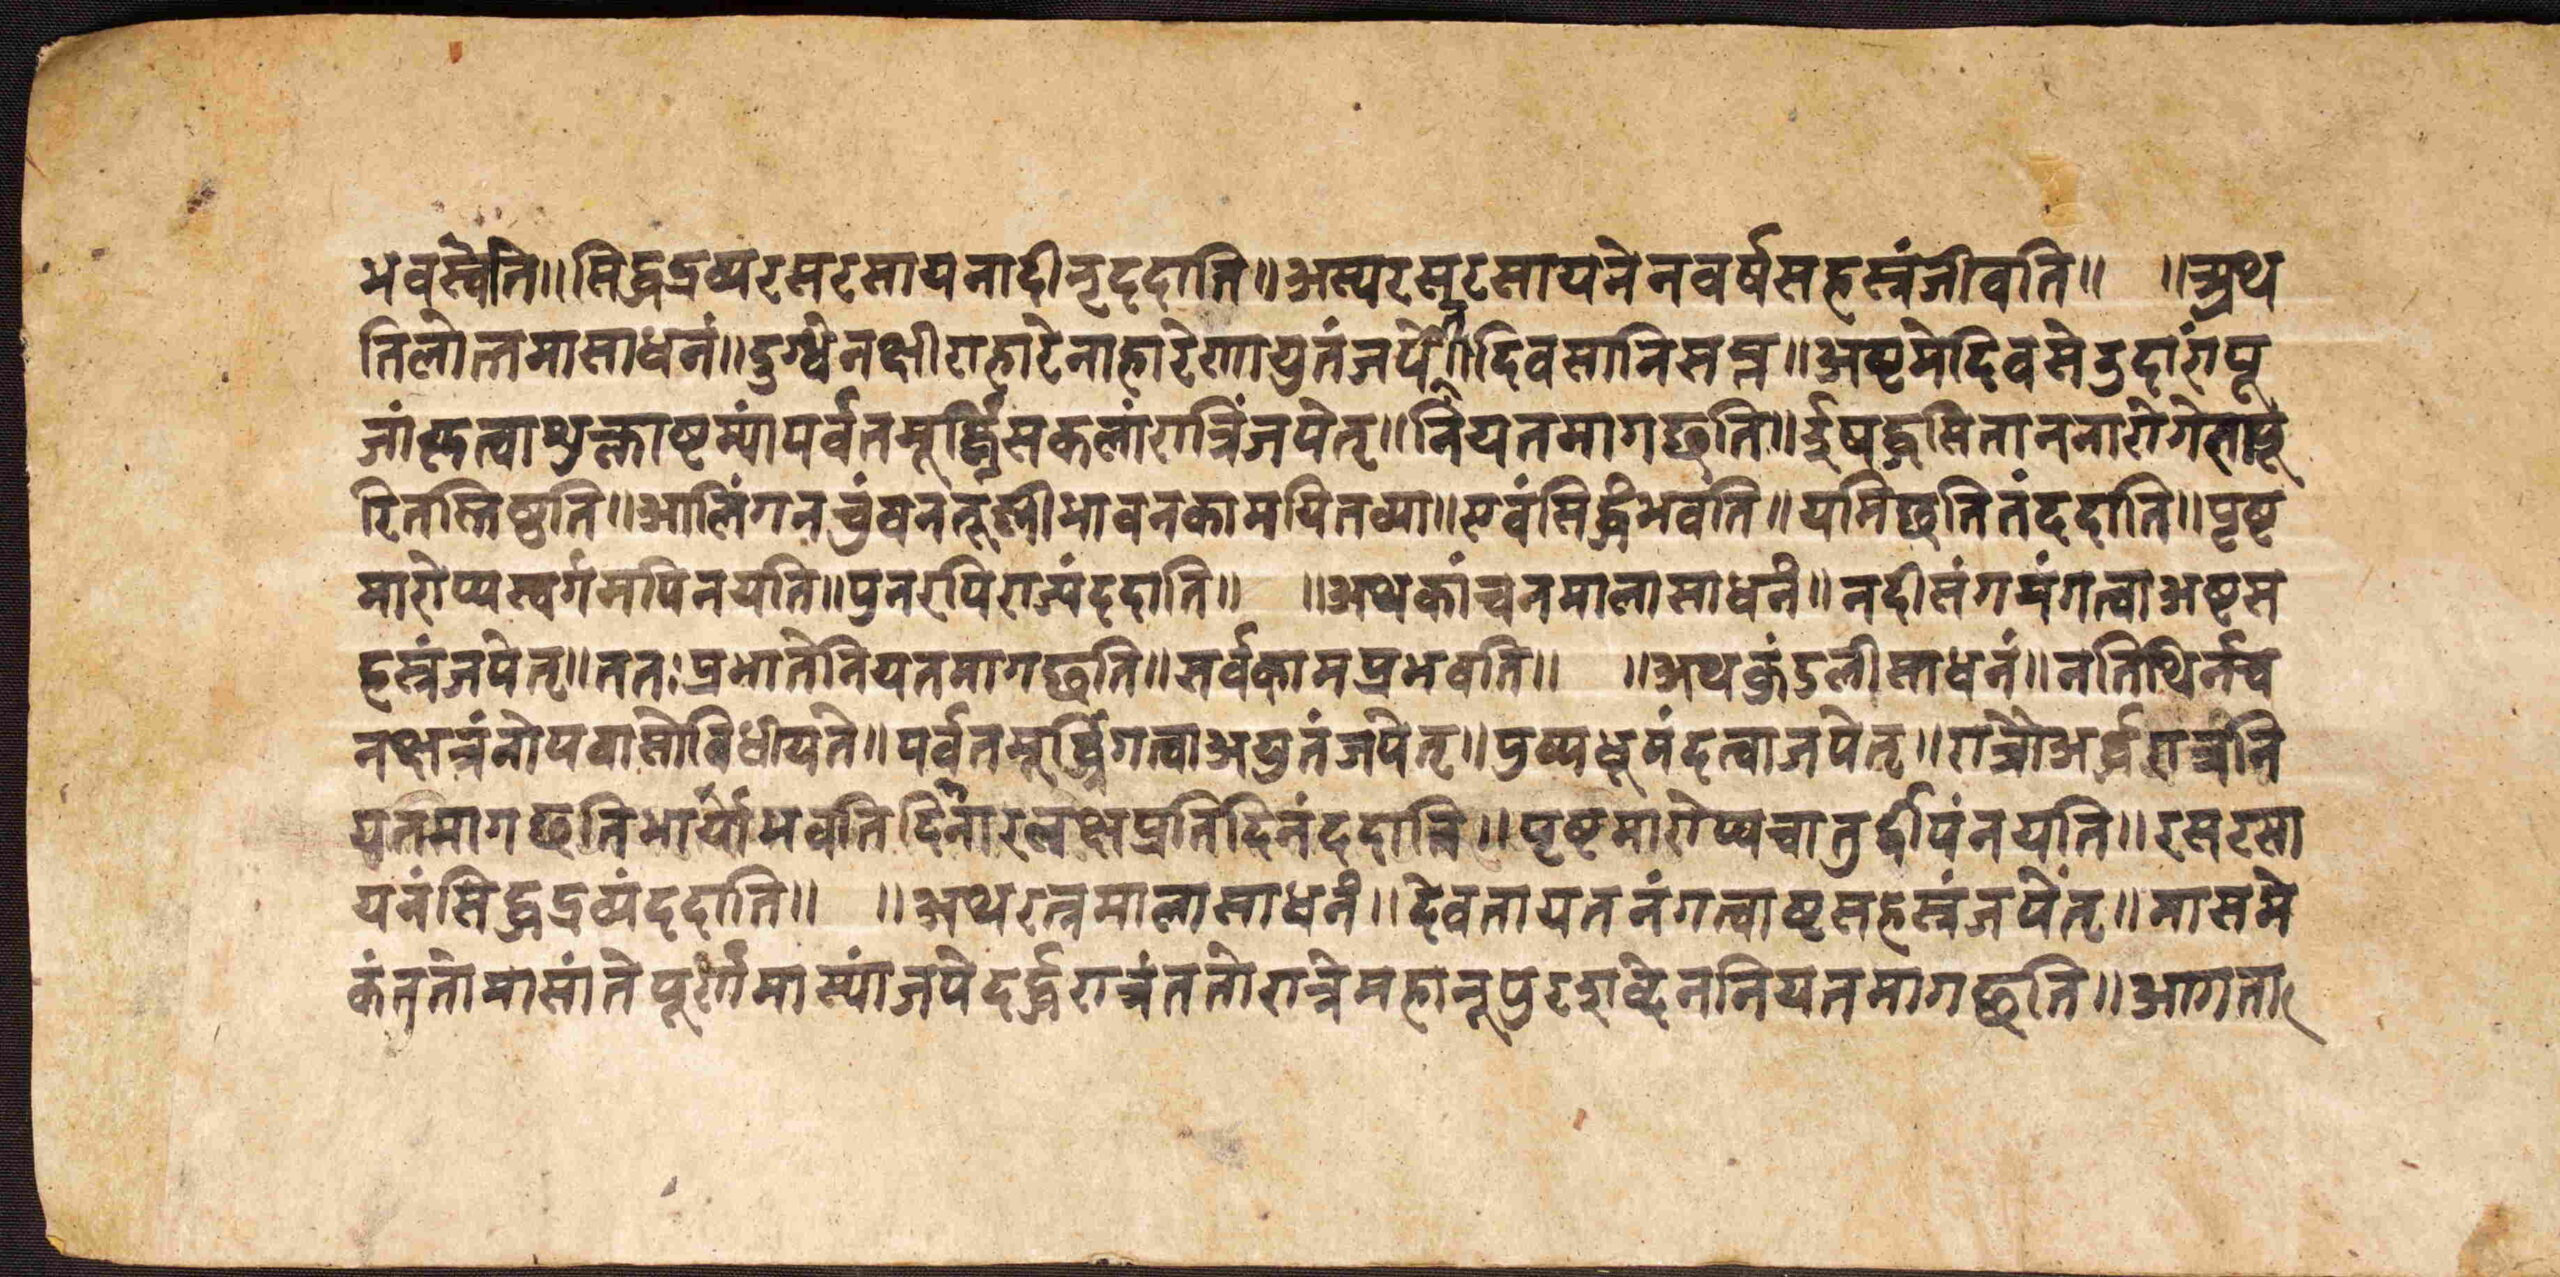 भवस्वेति॥सिद्धद्रव्यरसरसायनादीन्ददाति॥अस्यरसरसायनेनवर्षसहस्रंजीवति॥ ॥अथ
तिलोत्तमासाधनं॥दुग्धेनक्षीराहारेनाहारेणायुतंजपेत्दिवसानिसप्त॥अष्टमेदिवसेउदारांपू
जांकृत्वाशुक्लाष्टम्यांपर्वतमूर्द्ध्निसकलांरात्रिंजपेत्॥नियतमागछति॥ईषद्धसिताननारागेणापू
रितस्तिष्ठति॥आलिंगनचुंबनतूष्णीभावनकामयितव्या॥एवंसिद्धंभवति॥यमिछतितंददाति॥पृष्ट
मारोप्यस्वर्गमपिनयति॥पुनरपिराज्यंददाति॥ ॥अथकांचनमालासाधनं॥नदीसंगमंगत्वाअष्टस
हस्रंजपेत्॥ततःप्रभातेनियतमागछति॥सर्वकामप्रभवति॥ ॥अथकुंडलीसाधनं॥नतिथिर्नच
नक्षत्रंनोपवासोविधीयते॥पर्वतमूर्ध्निंगत्वाअयुतंजपेत्॥पुष्पधूपंदत्वाजपेत्॥रात्रौअर्द्धरात्रंनि
यतमागछतिभार्याभवतिदिनारलक्षप्रतिदिनंददाति॥पृष्टमारोप्यचातुर्द्वीपंनयति॥रसरसा
यनंसिद्धद्रव्यंददाति॥ ॥अथरत्नमालासाधनं॥देवतायतनंगत्वाष्टसहस्रंजपेत्॥मासमे
कंततोमासांतेपूर्णमास्यांजपेदर्द्धरात्रंततोरात्रेमहानूपुरशब्देननियतमागछति॥आगता